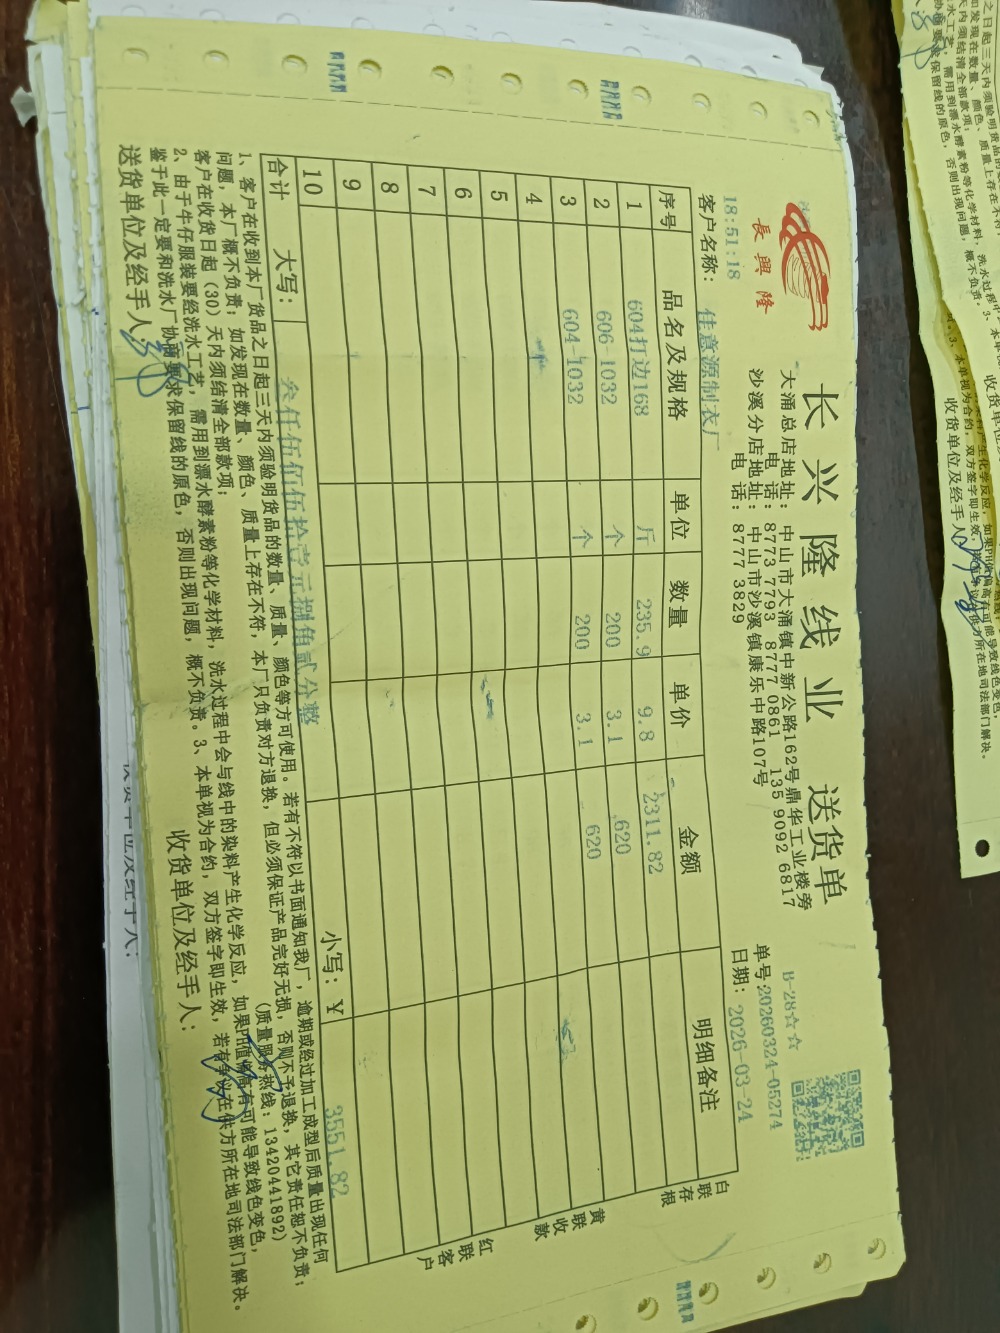 長興隆
长兴隆线业 送货单
大涌总店地址：中山市大涌镇中新公路162号鼎华工业楼旁
电 话：8773 7793 8777 0861 135 9092 6817
沙溪分店地址：中山市沙溪镇康乐中路107号
电 话：8777 3829
B-28☆☆
单号:20260324-05274
日期：2026-03-24
18:51:18
客户名称：佳意源制衣厂
序号 品名及规格 单位 数量 单价 金额 明细备注
1 604打边168 斤 235.9 9.8 2311.82
2 606-1032 个 200 3.1 620
3 604-1032 个 200 3.1 620
4
5
6
7
8
9
10
合计 大写：叁仟伍佰伍拾壹元捌角贰分整 小写：¥ 3551.82
白联存根
黄联收款
红联客户
1、客户在收到本厂货品之日起三天内须验明货品的数量、质量、颜色等方可使用。若有不符以书面通知我厂，逾期或经过加工成型后质量出现任何
问题，本厂概不负责；如发现在数量、颜色、质量上存在不符，本厂只负责对方退换，但必须保证产品完好无损，否则不予退换，其它责任恕不负责；
客户在收货日起（30）天内须结清全部款项； （质量服务热线：13420441892）
2、由于牛仔服装要经洗水工艺，需用到漂水酵素粉等化学材料，洗水过程中会与线中的染料产生化学反应，如果PH值偏高有可能导致线色变色，
鉴于此一定要和洗水厂协商要求保留线的原色，否则出现问题，概不负责。3、本单视为合约，双方签字即生效，若有争议在供方所在地司法部门解决。
送货单位及经手人： 收货单位及经手人：